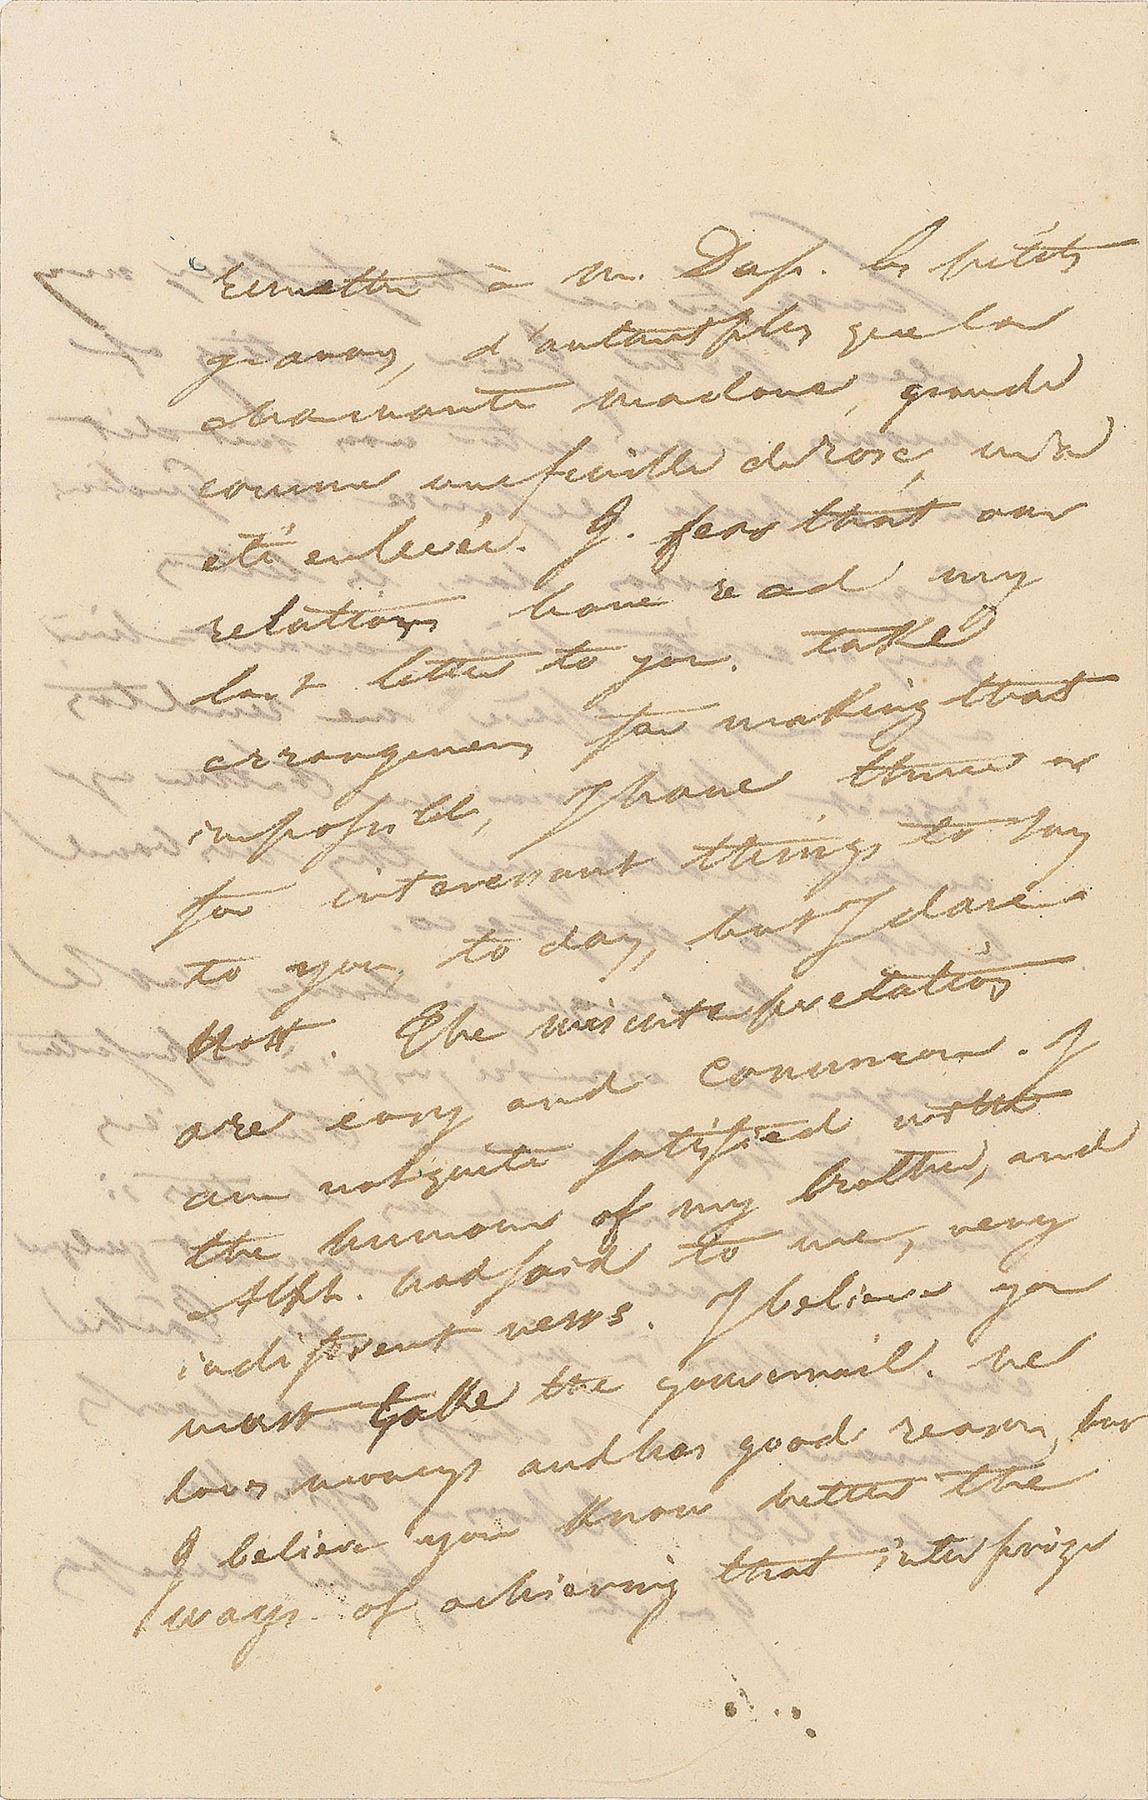 remettre à m. Dasp. les petits
gravas, d'autant plus que la
charmante madone, grande
comme une feuille de rose, m'a
été enlevée. I. fear that our
relations have read my
last letter to you. take
arrangemens for making that
impossible, I have three or
for interessant things to say
to you, to day, but I dare
not. The misinterpretations
are easy and common. I
am not quite satisfied with
the humour of my brother, and
Alph. had said to me, very
indifferent news. I believe you
must take the gouvernail. he
loves always and has good reason, but
I believe you know better the
ways of achieving that interprize